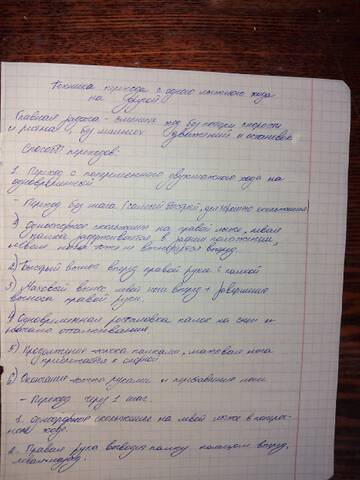 Техника перехода с одного лыжного хода
на другой
Главная задача - сменить ход без потери скорости
и ритма, без лишних движений и остановок
Способы переходов:
1. Переход с попеременного двухшажного хода на
одновременный
- Переход без шага (самый быстрый,
1) Одноопорное скольжение на правой ноге, левая
палка задерживается в заднем положении,
левая
2) Быстрый вынос вперед правой руки с палкой
3) Маховый вынос левой ноги вперед + завершение
выноса правой руки.
4) Одновременная постановка палок на снег и
начало отталкивания.
5) Продолжение толчка палками, маховая нога
приближается к опорной
6) Окончание толчка руками и приставление ноги
- Переход через 1 шаг.
1. Одноопорное скольжение на левой ноге в
ходе.
2. Правая рука выводит палку кольцом вперед,
левая-назад.